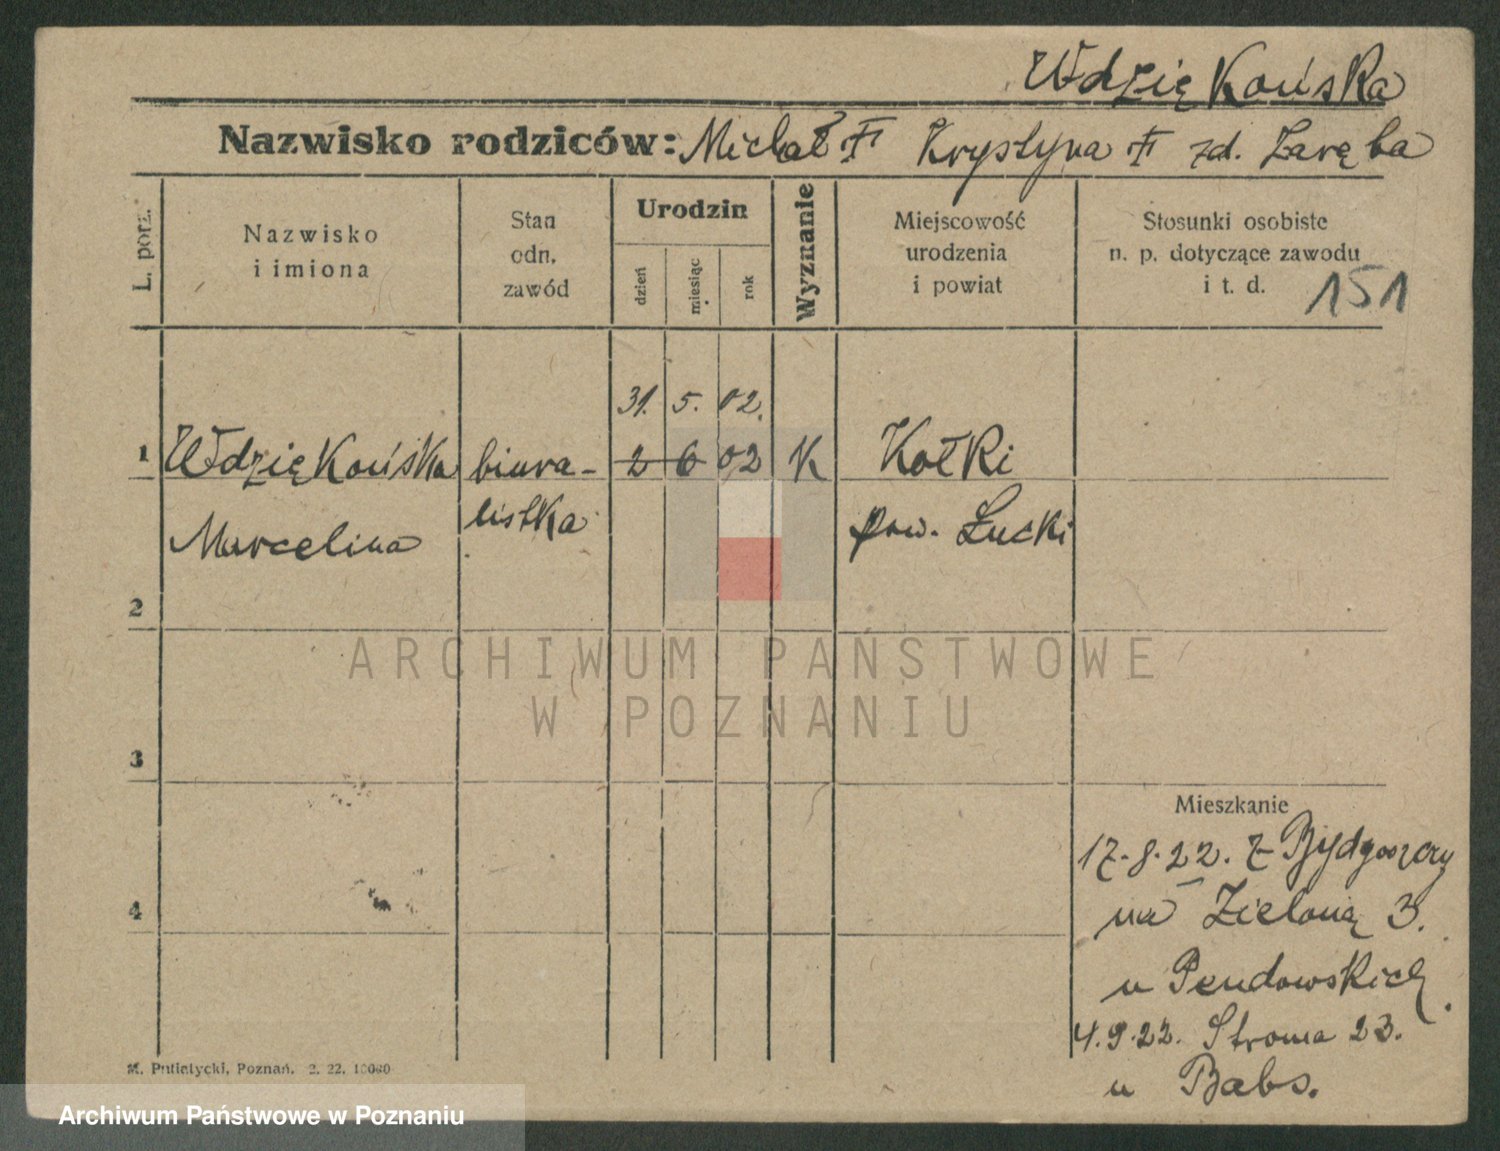 Wdziękońska
Nazwisko rodziców: Michał † Krystyna † zd. Zaręba
L. porz.
Nazwisko
i imiona
Stan
odn.
zawód
Urodzin
dzień
miesiąc
rok
Wyznanie
Miejscowość
urodzenia
i powiat
Stosunki osobiste
n. p. dotyczące zawodu
i t. d.
151
31. 5. 02.
1 Wdziękońska biura- 2 6 02 K Kołki
Marcelina listka pow. Łucki
2
3
4
Mieszkanie
17.8.22. z Bydgoszczy
na Zieloną 3.
u Pendowskich.
4.9.22. Stroma 23.
u Babs.
M. Putiatycki, Poznań. 2. 22. 10000
ARCHIWUM PAŃSTWOWE
W POZNANIU
Archiwum Państwowe w Poznaniu